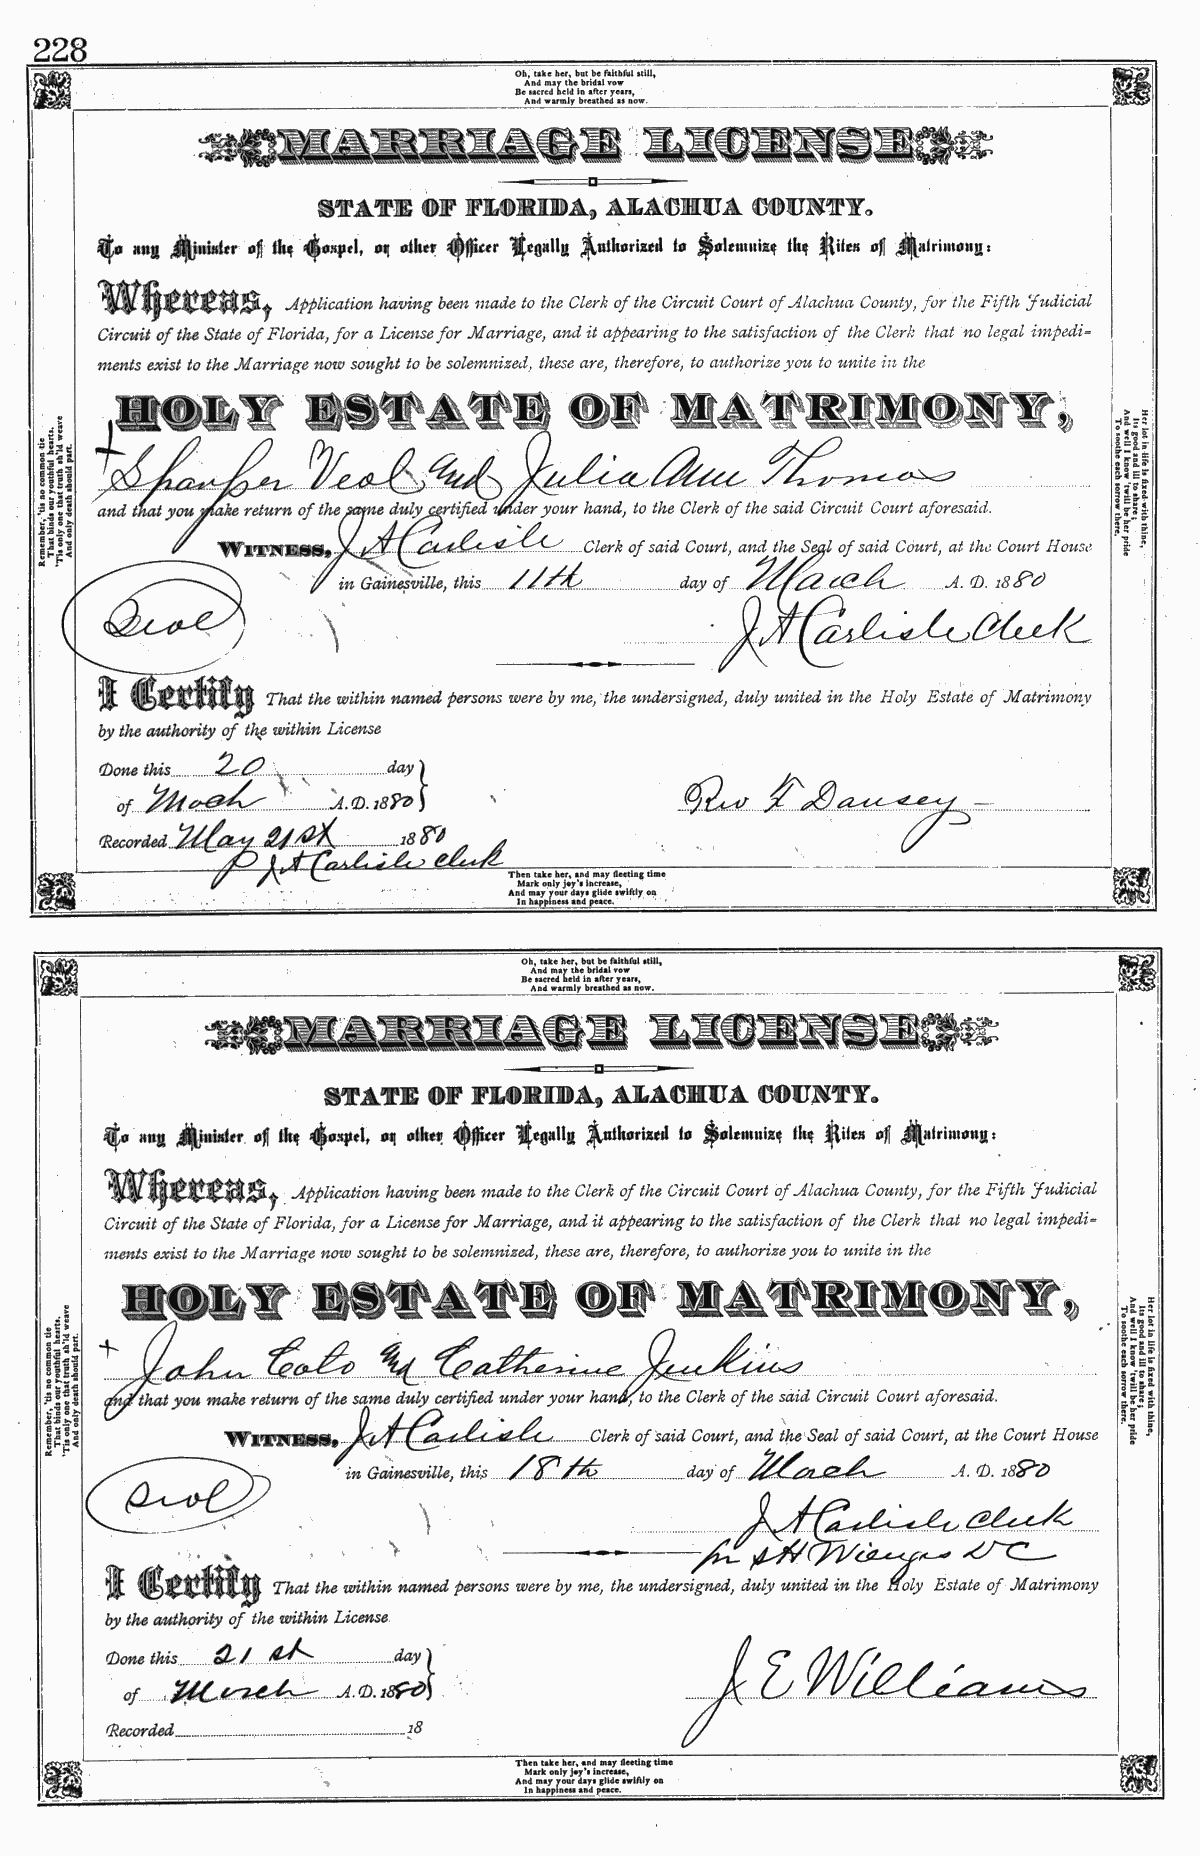 228
Oh, take her, but be faithful still,
And may the bridal vow
Be sacred held in after years,
And warmly breathed as now.
MARRIAGE LICENSE
STATE OF FLORIDA, ALACHUA COUNTY.
To any Minister of the Gospel, or other Officer Legally Authorized to Solemnize the Rites of Matrimony:
Whereas, Application having been made to the Clerk of the Circuit Court of Alachua County, for the Fifth Judicial
Circuit of the State of Florida, for a License for Marriage, and it appearing to the satisfaction of the Clerk that no legal impedi=
ments exist to the Marriage now sought to be solemnized, these are, therefore, to authorize you to unite in the
HOLY ESTATE OF MATRIMONY,
and Julia Ann Thomas
and that you make return of the same duly certified under your hand, to the Clerk of the said Circuit Court aforesaid.
WITNESS, J A Carlisle Clerk of said Court, and the Seal of said Court, at the Court House
in Gainesville, this 11th day of March A. D. 1880
Seal
J A Carlisle Clerk
I Certify That the within named persons were by me, the undersigned, duly united in the Holy Estate of Matrimony
by the authority of the within License
Done this 20 day
of March A. D. 1880
Rev F Dansey
Recorded May 21st 1880
J A Carlisle Clerk
Then take her, and may fleeting time
Mark only joy's increase,
And may your days glide swiftly on
In happiness and peace.
Remember, 'tis no common tie
That binds our youthful hearts.
'Tis only one that truth sh'ld weave
And only death should part.
Her lot in life is fixed with thine,
Its good and ill to share;
And well I know 'twill be her pride
To soothe each sorrow there.
Oh, take her, but be faithful still,
And may the bridal vow
Be sacred held in after years,
And warmly breathed as now.
MARRIAGE LICENSE
STATE OF FLORIDA, ALACHUA COUNTY.
To any Minister of the Gospel, or other Officer Legally Authorized to Solemnize the Rites of Matrimony:
Whereas, Application having been made to the Clerk of the Circuit Court of Alachua County, for the Fifth Judicial
Circuit of the State of Florida, for a License for Marriage, and it appearing to the satisfaction of the Clerk that no legal impedi=
ments exist to the Marriage now sought to be solemnized, these are, therefore, to authorize you to unite in the
HOLY ESTATE OF MATRIMONY,
John Cato and Catherine Jenkins
and that you make return of the same duly certified under your hand, to the Clerk of the said Circuit Court aforesaid.
WITNESS, J A Carlisle Clerk of said Court, and the Seal of said Court, at the Court House
in Gainesville, this 18th day of March A. D. 1880
Seal
J A Carlisle Clerk
S H Wienges DC
I Certify That the within named persons were by me, the undersigned, duly united in the Holy Estate of Matrimony
by the authority of the within License
Done this 21st day
of March A. D. 1880
J E Williams
Recorded 18
Then take her, and may fleeting time
Mark only joy's increase,
And may your days glide swiftly on
In happiness and peace.
Remember, 'tis no common tie
That binds our youthful hearts.
'Tis only one that truth sh'ld weave
And only death should part.
Her lot in life is fixed with thine,
Its good and ill to share;
And well I know 'twill be her pride
To soothe each sorrow there.